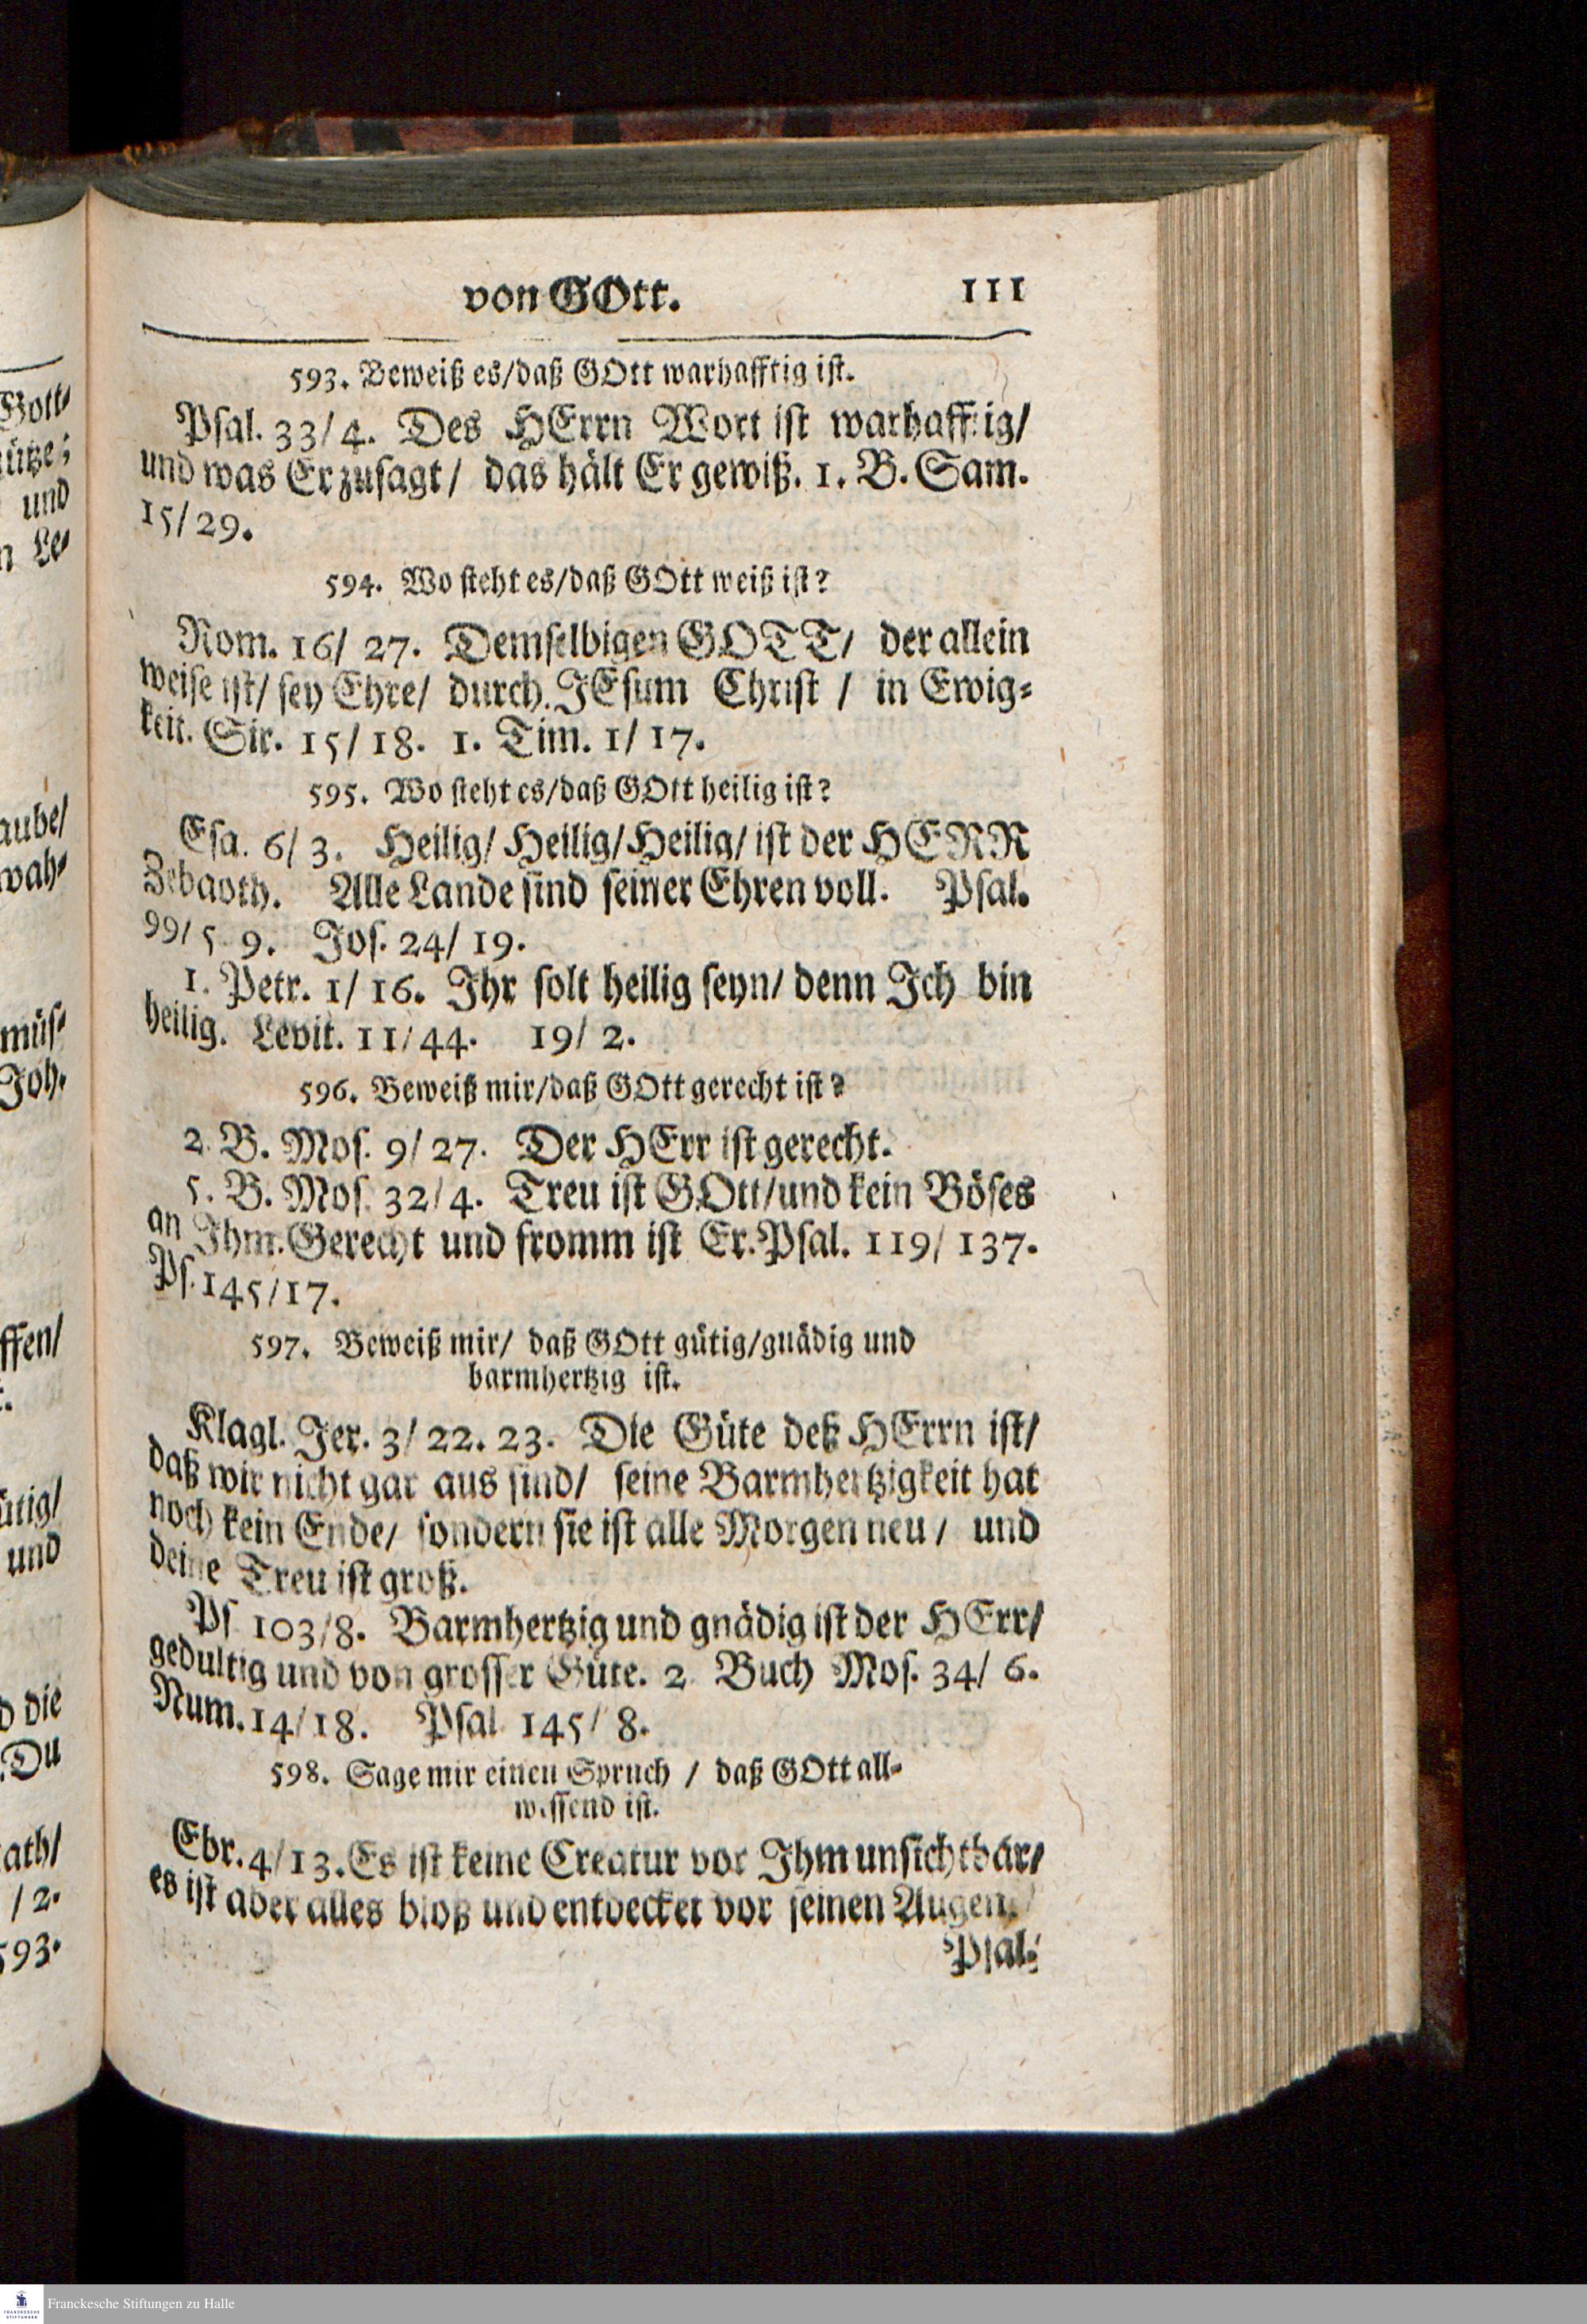 von GOtt. 111
593. Beweiß es/daß GOtt warhafftig ist.
Psal. 33/4. Des HErrn Wort ist warhafftig/
und was Er zusagt/ das hält Er gewiß. 1. B. Sam.
15/29.
594. Wo steht es/daß GOtt weiß ist?
Rom. 16/ 27. Demselbigen GOTT/ der allein
weise ist/ sey Ehre/ durch JEsum Christ / in Ewig⸗
keit. Sir. 15/18. 1. Tim. 1/ 17.
595. Wo steht es/daß GOtt heilig ist?
Esa. 6/ 3. Heilig/ Heilig/Heilig/ ist der HERR
Zebaoth. Alle Lande sind seiner Ehren voll. Psal.
99/ 5 9. Jos. 24/ 19.
1. Petr. 1/ 16. Ihr solt heilig seyn/ denn Ich bin
heilig. Levit. 11/44. 19/ 2.
596. Beweiß mir/daß GOtt gerecht ist?
2. B. Mos. 9/ 27. Der HErr ist gerecht.
5. B. Mos. 32/4. Treu ist GOtt/und kein Böses
an Ihm. Gerecht und fromm ist Er. Psal. 119/ 137.
Ps. 145/17.
597. Beweiß mir/ daß GOtt gütig/gnädig und
barmhertzig ist.
Klagl. Jer. 3/ 22. 23. Die Güte deß HErrn ist/
daß wir nicht gar aus sind/ seine Barmhertzigkeit hat
noch kein Ende/ sondern sie ist alle Morgen neu / und
deine Treu ist groß.
Ps 103/8. Barmhertzig und gnädig ist der HErr/
gedultig und von grosser Güte. 2 Buch Mos. 34/ 6.
Num. 14/18. Psal 145/ 8.
598. Sage mir einen Spruch / daß GOtt all⸗
wissend ist.
Ebr. 4/13. Es ist keine Creatur vor Ihm unsichtbar/
es ist aber alles bloß und entdecket vor seinen Augen.
Psal.
Gott⸗
und
Le⸗
aube/
wah⸗
müs⸗
Joh.
ffen/
ütig/
und
die
Du
ath/
/ 2.
593.
Franckesche Stiftungen zu Halle